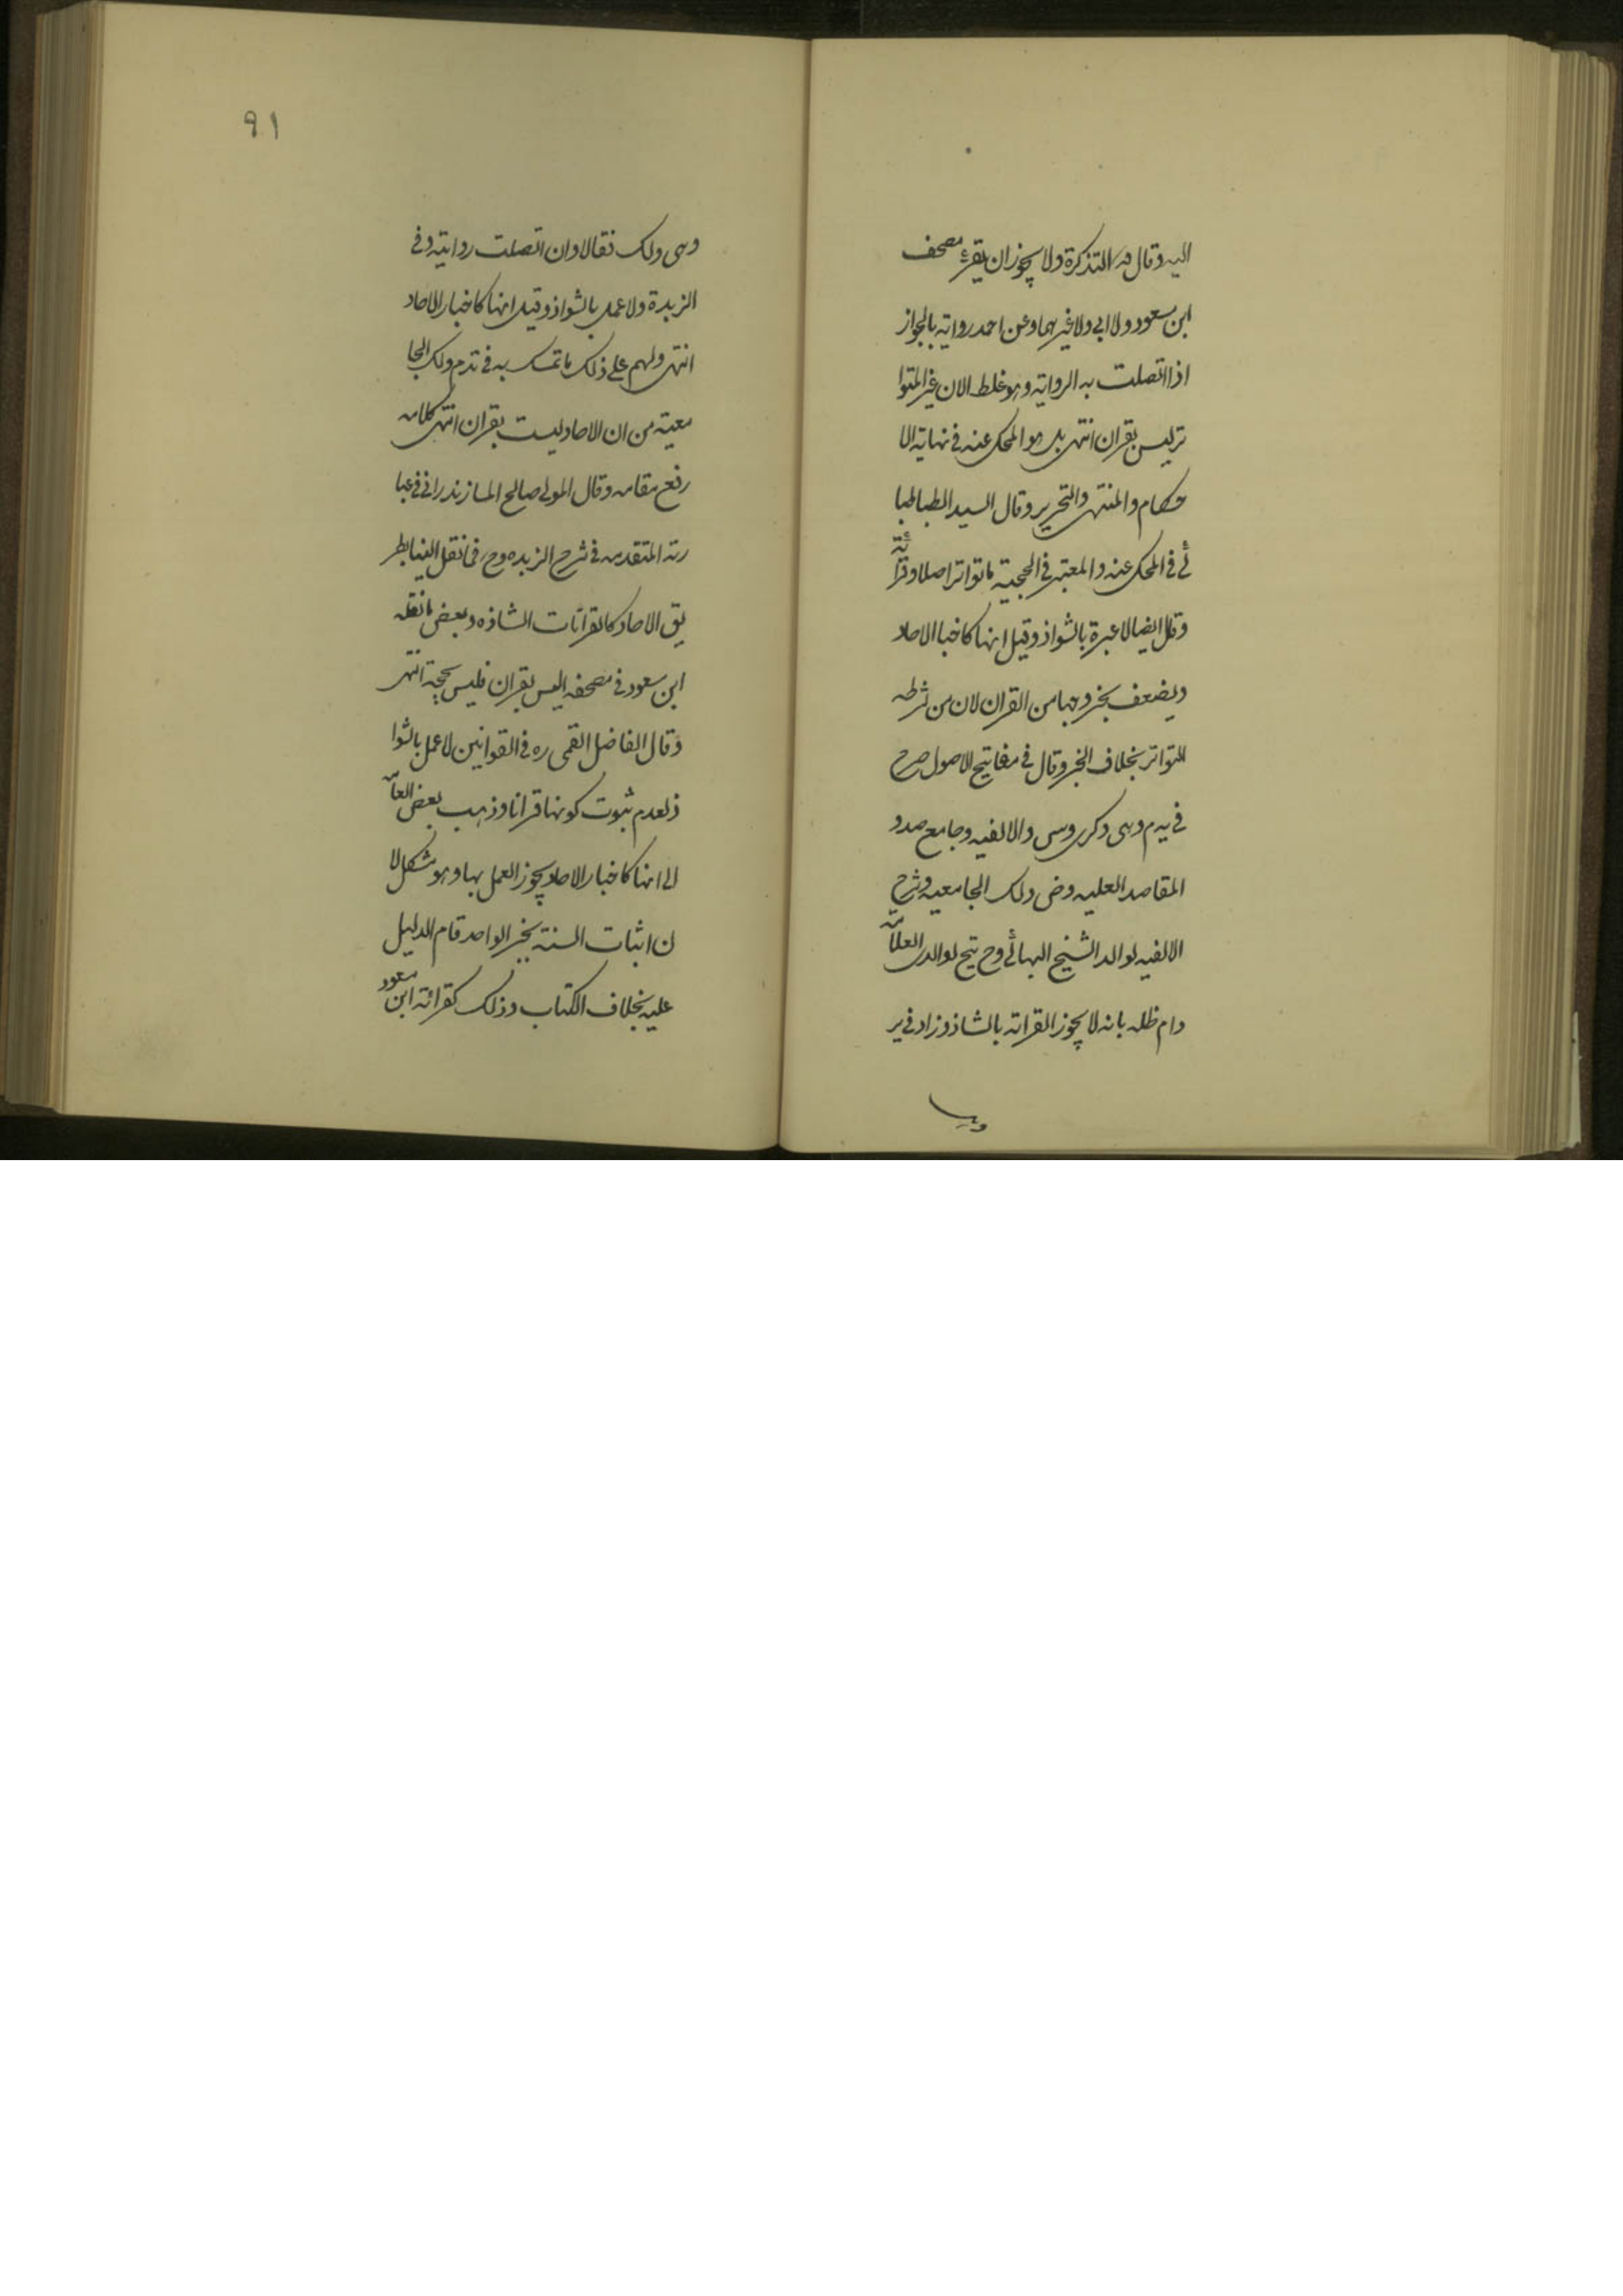 اليه وقال في التذكرة ولا يجوز ان يقرء مصحف
ابن مسعود ولا ابي ولا غيرهما وعن احمد رواية بالجواز
اذا اتصلت به الرواية وهو غلط لان غير المتوا
تر ليس بقران انتهى بل هو المحكى عنه في نهاية الا
حكام والمنتهى والتحرير وقال السيد الطباطبا
ئى في المحكى عنه والمعتبر في الحجية ما تواتر اصلا وقرائة
وقال ايضا لا عبرة بالشواذ وقيل انها كاخبا الاحاد
ويضعف بخروجها من القران لان من شرطه
التواتر بخلاف الخبر وقال في مفاتيح الاصول صرح
في يه م وهى وكرى وس والالفيه وجامع صد و
المقاصد العليه وض ولك الجامعيه وشرح
الالفيه لوالد الشيخ البهائى وح تيح لوالدى العلامة
دام ظله بانه لا يجوز القرائة بالشاذ وزاد في ير
وهى
٩١
وهى ولك فقالا وان اتصلت رواية وفي
الزبدة ولا عمل بالشواذ وقيل انها كاخبار الاحاد
انتهى ولهم على ذلك ما تمسك به في ولك الجا
معية من ان الاحاد ليست بقران انتهى كلامه
رفع مقامه وقال المولى صالح المازندرانى في عبا
رته المتقدمه في شرح الزبده وح فما نقل الينا بطر
يق الاحاد كالقرائات الشاذه وبعض ما نقله
ابن مسعود في مصحفه ليس بقران فليس بحجة انتهى
وقال الفاضل القمى ره في القوانين لا عمل بالشوا
ذ لعدم ثبوت كونها قرانا وذهب بعض العامّة
الى انها كاخبار الاحاد يجوز العمل بها وهو مشكل لا
ن اثبات السنة بخبر الواحد قام الدليل
عليه بخلاف الكتاب وذلك كقرائة ابن مسعود